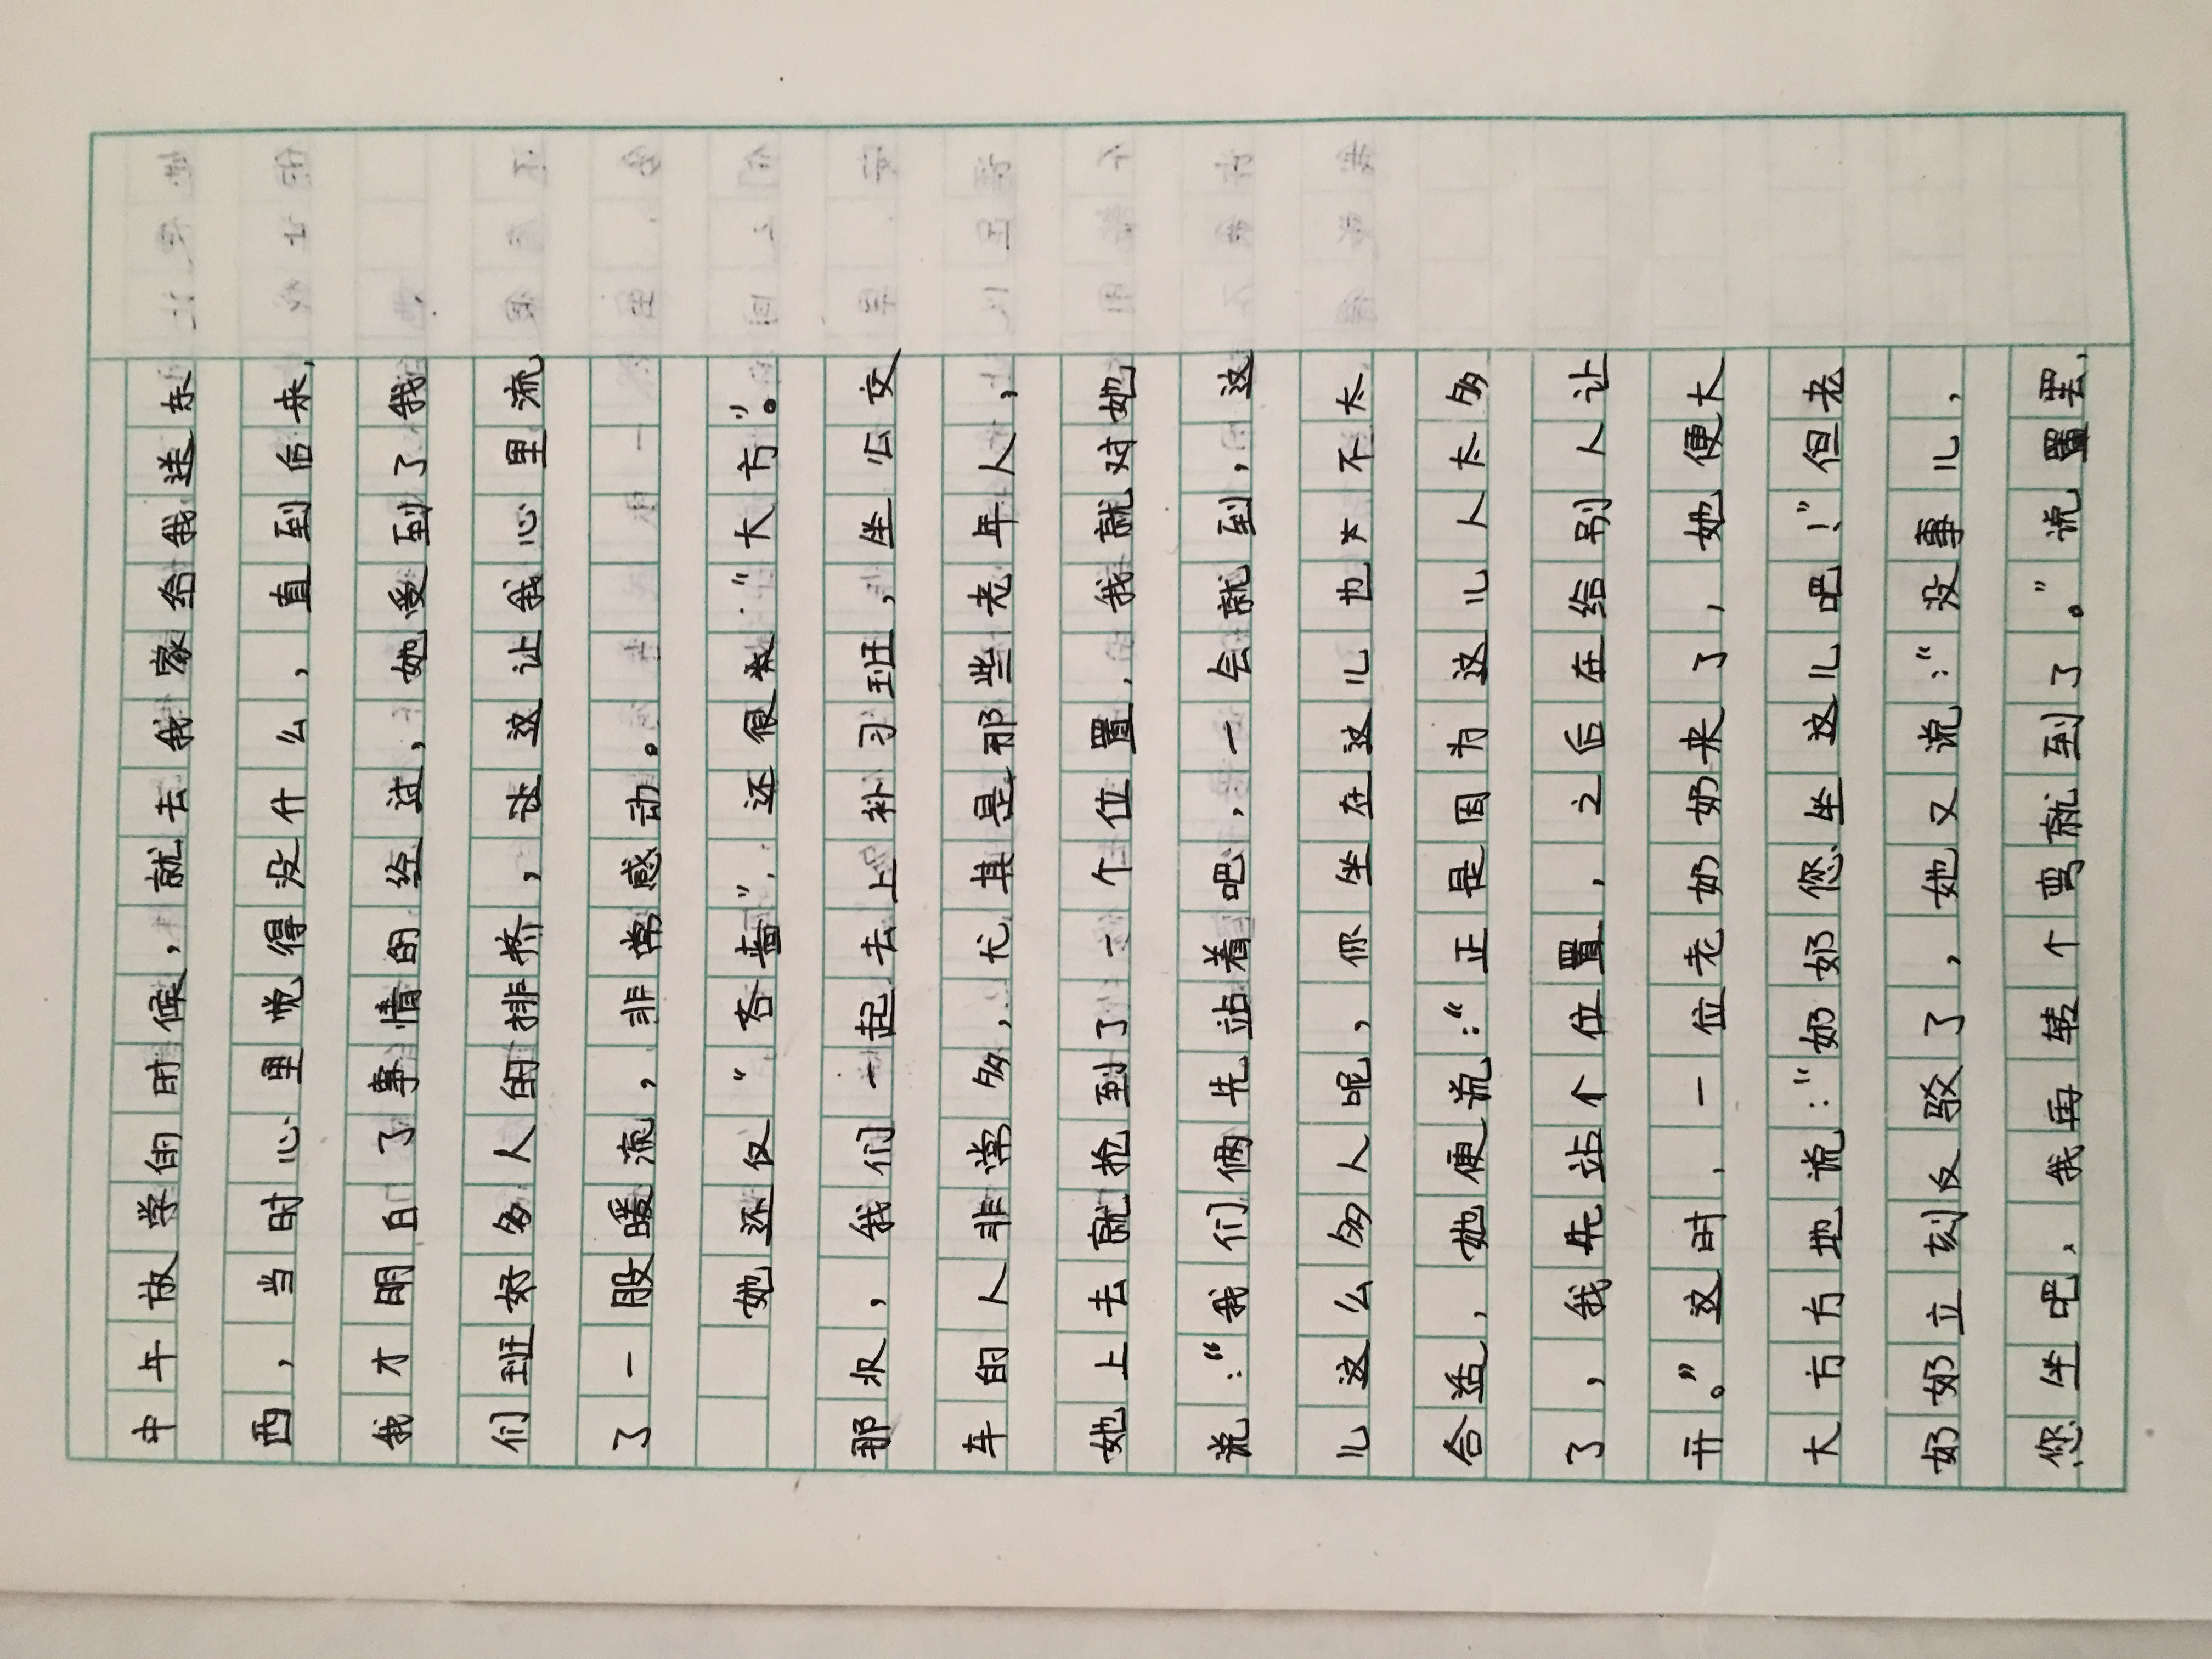 中午放学的时候，就去我家给我送东
西，当时心里觉得没什么，直到后来，
我才明白了事情的经过，她受到了我
们班好多人的排挤，让这让我心里流
了一股暖流，非常感动。
她还仅“吝啬”，还很“大方”。
那次，我们一起去上补习班，坐公交
车的人非常多，尤其是那些老年人，
她上去就抢到了一个位置，我就对她
说：“我们俩先站着吧，一会就到，这
儿这么多人呢，你坐在这儿也不太
合适，她便说：“正是因为这儿人太多
了，我先站个位置，之后在给别人让
开。”这时，一位老奶奶来了，她便大
大方方地说：“奶奶您坐这儿吧！”但老
奶奶立刻反驳了，她又说：“没事儿，
您坐吧，我再转个弯就到了。”说罢，